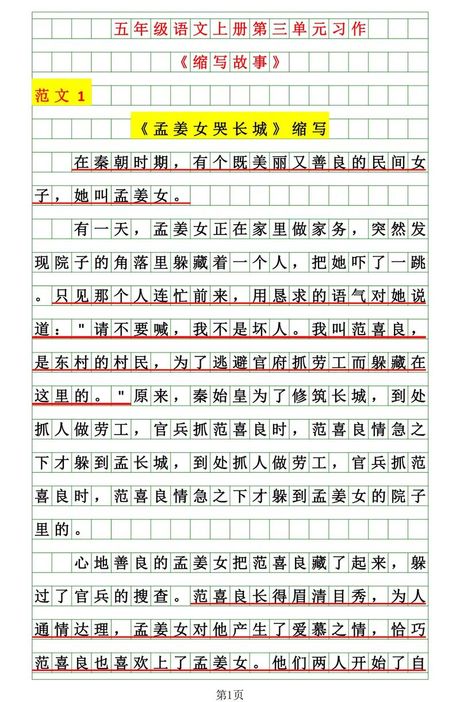 五年级语文上册第三单元习作
《缩写故事》
范文1
《孟姜女哭长城》缩写
在秦朝时期，有个既美丽又善良的民间女
子，她叫孟姜女。
有一天，孟姜女正在家里做家务，突然发
现院子的角落里躲藏着一个人，把她吓了一跳
。只见那个人连忙前来，用恳求的语气对她说
道："请不要喊，我不是坏人。我叫范喜良，
是东村的村民，为了逃避官府抓劳工而躲藏在
这里的。"原来，秦始皇为了修筑长城，到处
抓人做劳工，官兵抓范喜良时，范喜良情急之
下才躲到孟长城，到处抓人做劳工，官兵抓范
喜良时，范喜良情急之下才躲到孟姜女的院子
里的。
心地善良的孟姜女把范喜良藏了起来，躲
过了官兵的搜查。范喜良长得眉清目秀，为人
通情达理，孟姜女对他产生了爱慕之情，恰巧
范喜良也喜欢上了孟姜女。他们两人开始了自
第1页